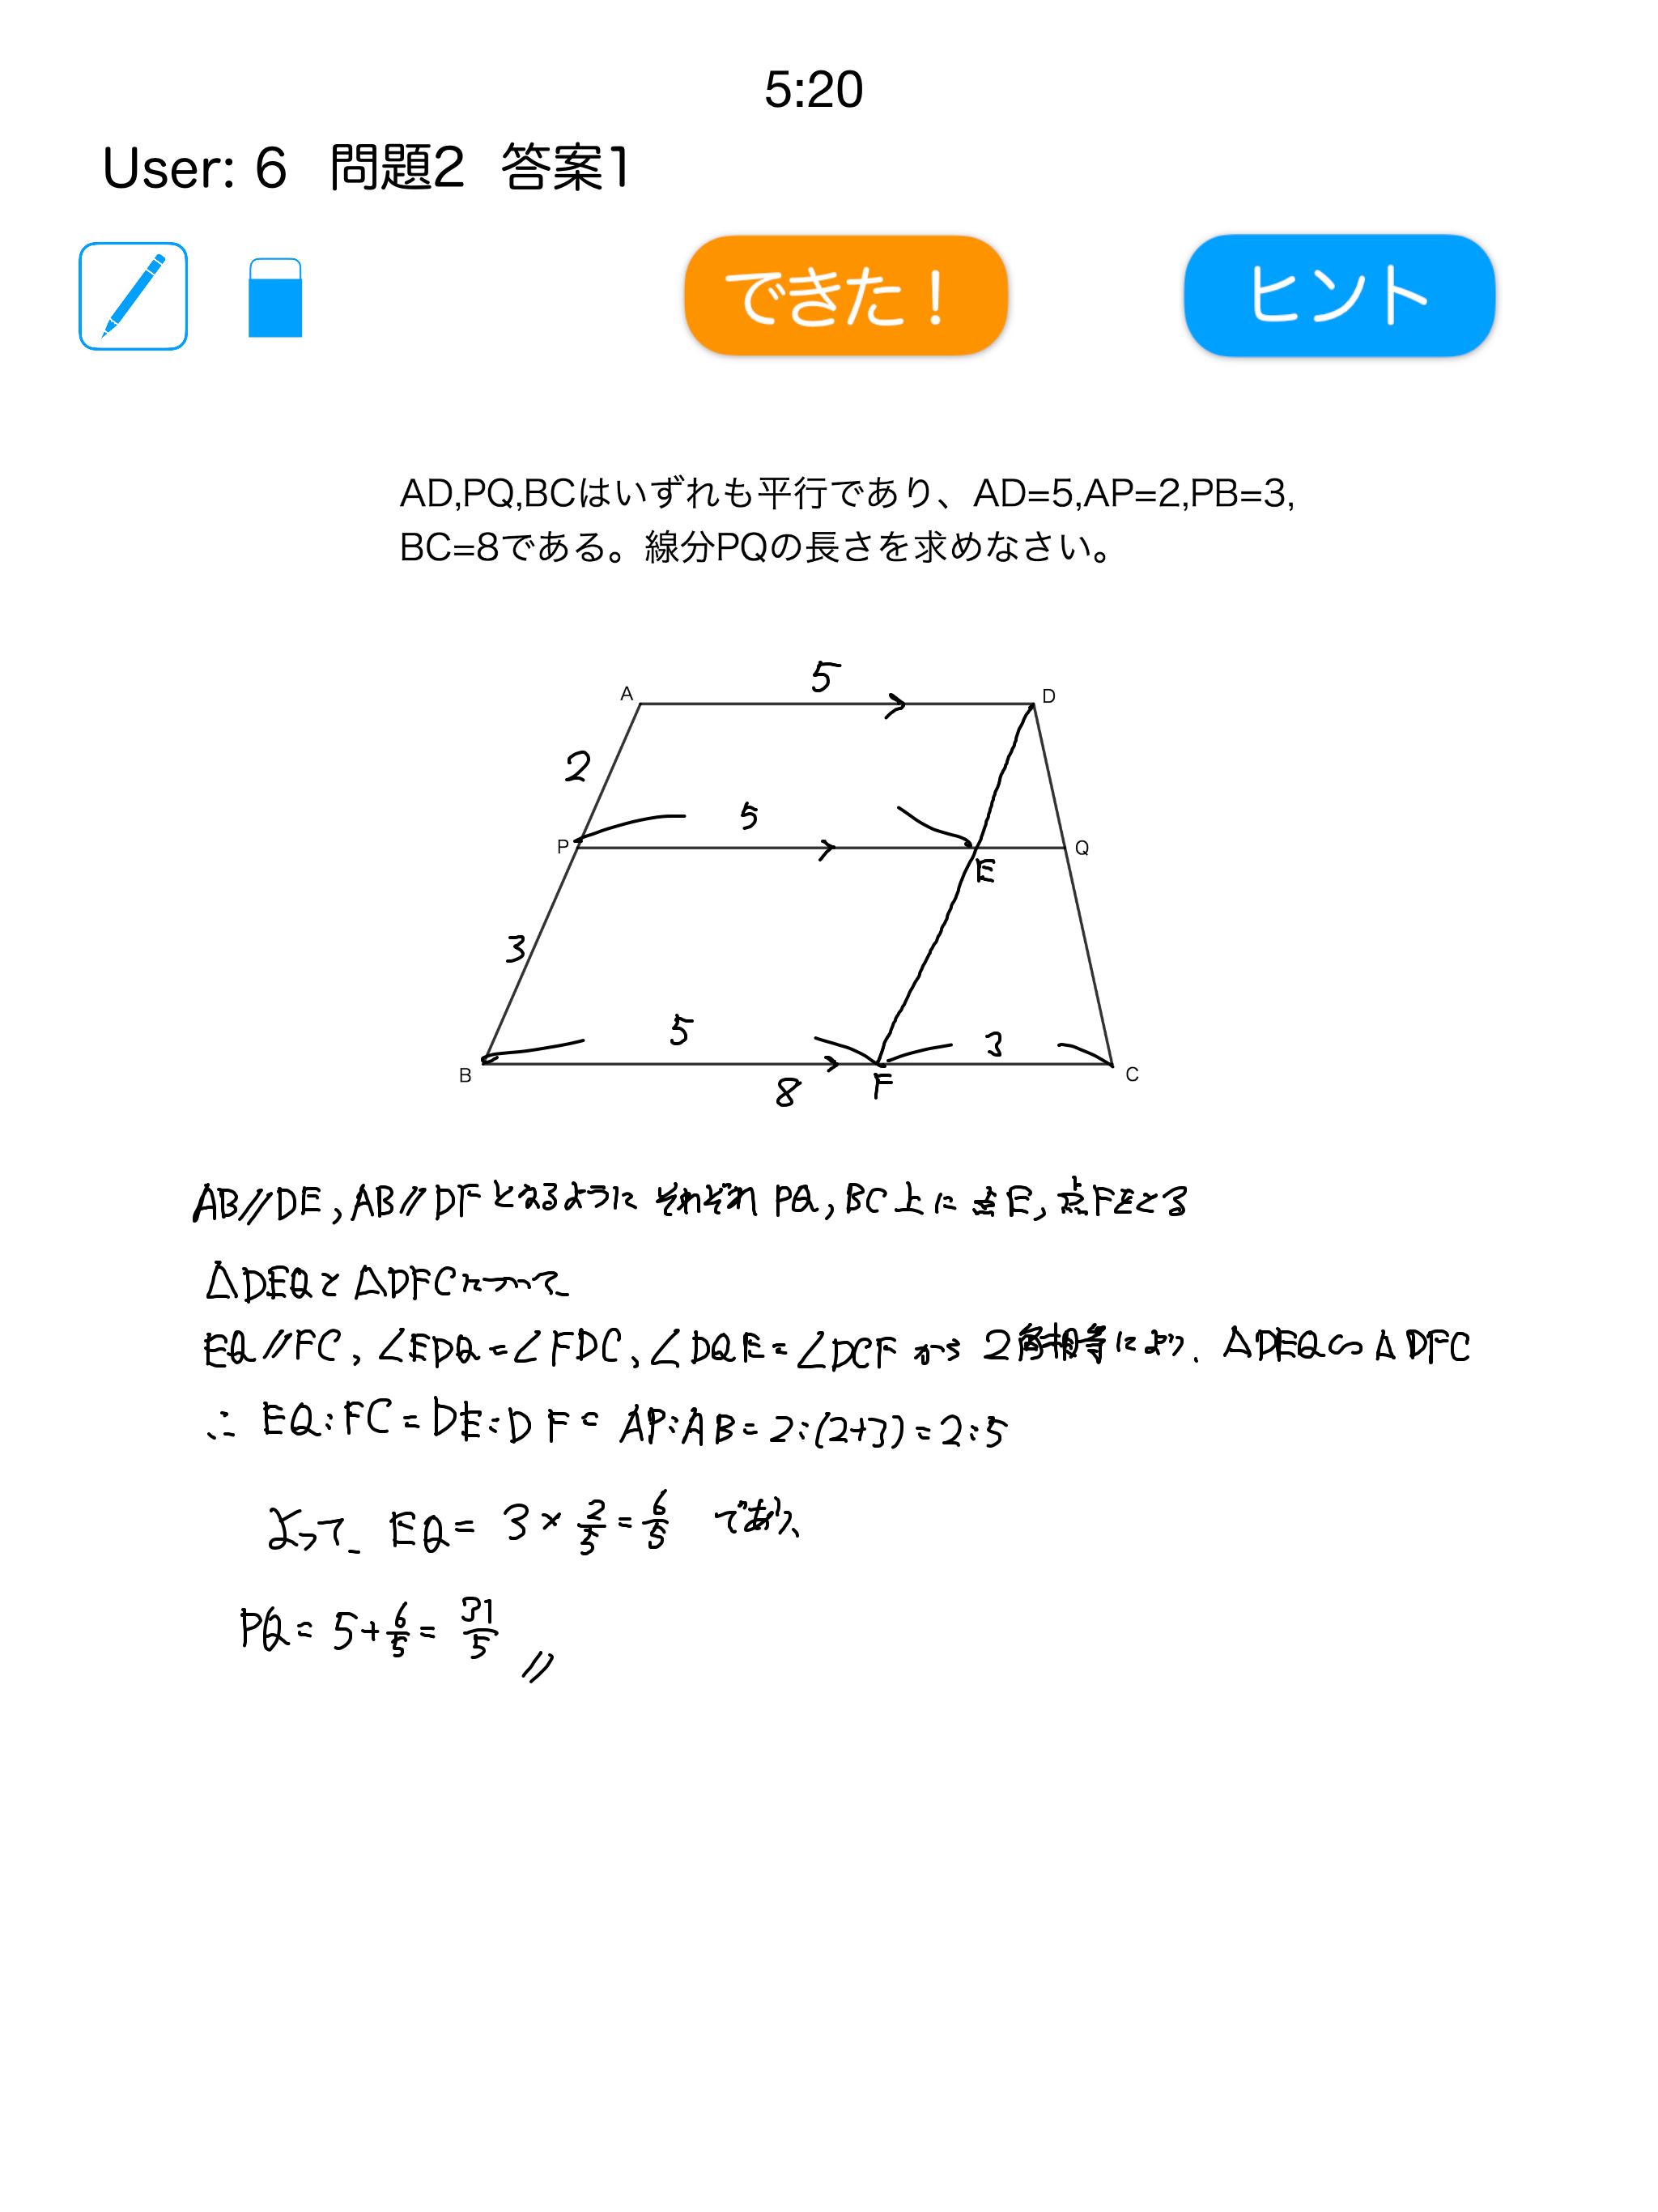 5:20
User: 6 問題2 答案1
できた！ ヒント
AD,PQ,BCはいずれも平行であり、AD=5,AP=2,PB=3,
BC=8である。線分PQの長さを求めなさい。
5
A D
2
5
P Q
E
3
5 3
B C
8 F
AB//DE, AB//DFとなるように それぞれ PQ, BC上に点E, 点Fをとる
△DEQと△DFCについて
EQ//FC, ∠EDQ=∠FDC, ∠DQE=∠DCFから 2角相等により、△DEQ∽△DFC
∴ EQ:FC=DE:DF=AP:AB=2:(2+3)=2:5
よって、EQ=3×2/5=6/5 であり、
PQ=5+6/5=31/5 //